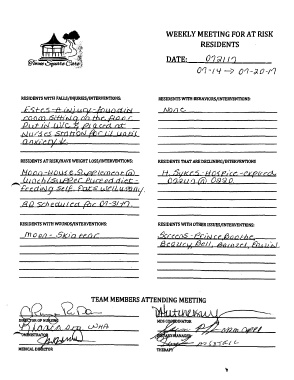 Stone Square Care
WEEKLY MEETING FOR AT RISK
RESIDENTS
DATE: 072117
07-14 → 07-20-17
RESIDENTS WITH FALLS/INJURIES/INTERVENTIONS:
Estes - Ø injury - Found in
room sitting on the floor.
Put in W/C & placed at
Nurses Station for 1:1 until
anxiety ↓.
RESIDENTS WITH BEHAVIORS/INTERVENTIONS:
None
RESIDENTS AT RISK/HAVE WEIGHT LOSS/INTERVENTIONS:
Moon - House Supplement @
lunch/supper. Pureed diet -
feeding self. Eats well
scheduled for
RESIDENTS THAT ARE DECLINING/INTERVENTIONS:
H. Sykes - Hospice - expired
@ 0220
RESIDENTS WITH WOUNDS/INTERVENTIONS:
Moon - Skin tear
RESIDENTS WITH OTHER ISSUES/INTERVENTIONS:
Screens - Prince, Boothe,
TEAM MEMBERS ATTENDING MEETING
DIRECTOR OF NURSING
MDS COORDINATOR
ADMINISTRATOR
MEDICAL DIRECTOR
THERAPY